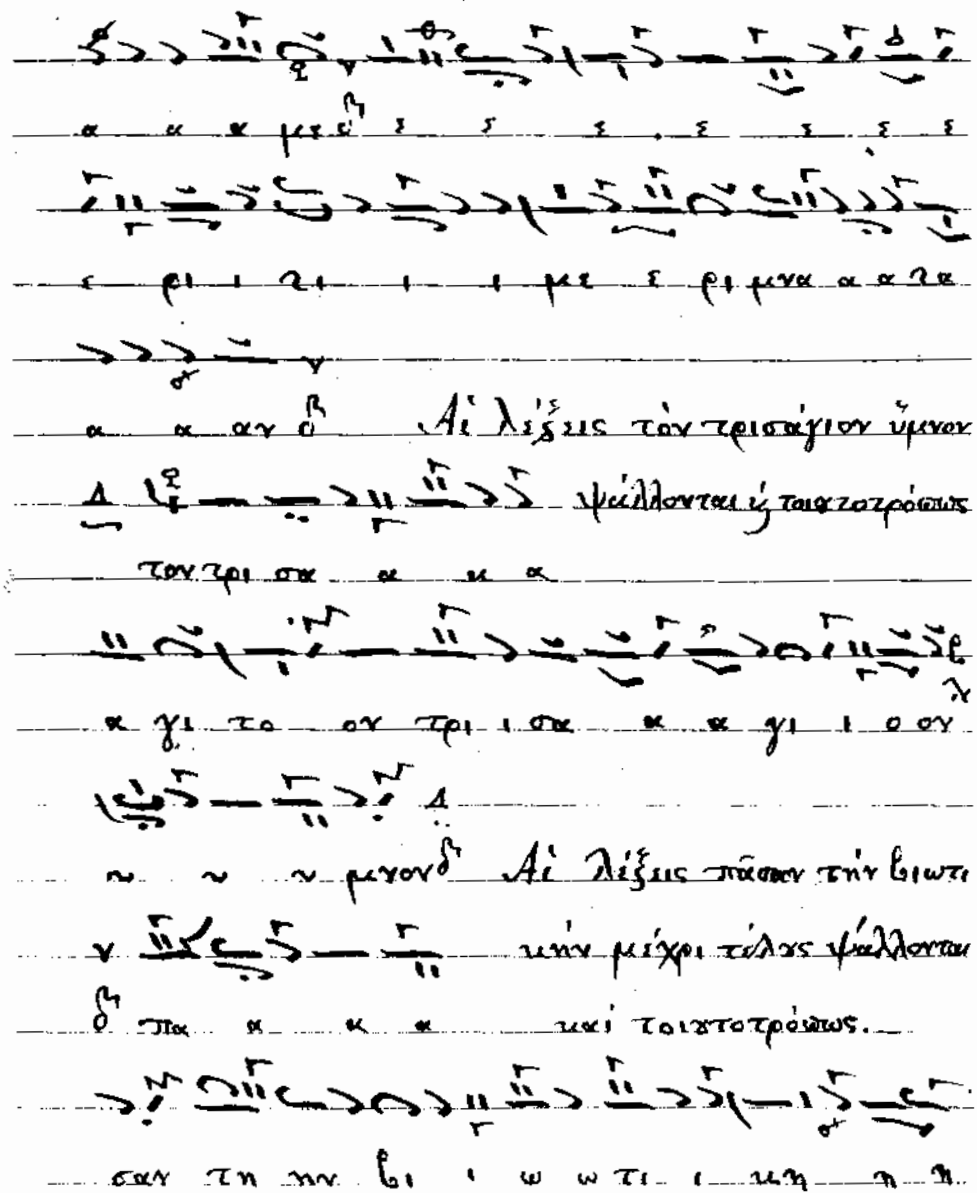 α α α με ε ε ε ε ε ε ε ε
ε ρι ι τι ι ι με ε ρι μνα α α τα
α α αν Αἱ λέξεις τὸν τρισάγιον ὕμνον
ψάλλονται
τον τρι σα α α α
α γι το ον τρι ι σα α α γι ι ο ον
υ υ υ μνον Αἱ λέξεις πᾶσαν τὴν βιωτι
κὴν μέχρι τέλους ψάλλονται
πα α α α καὶ τοιουτοτρόπως.
σαν τη ην βι ι ω ω τι ι κη η η